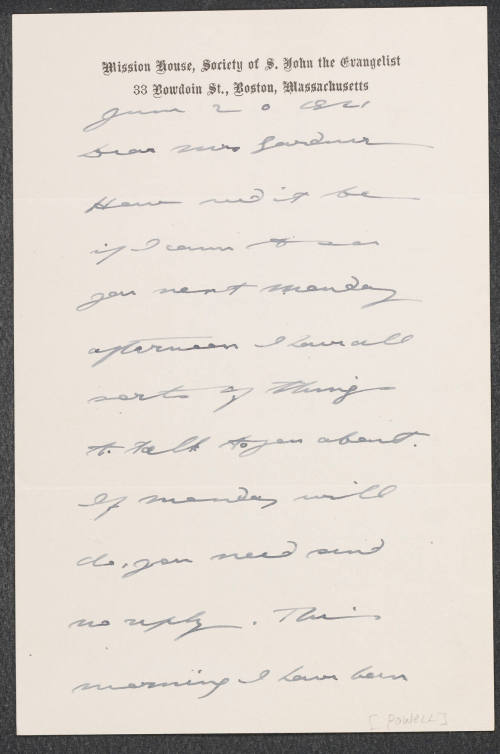 Mission House, Society of S. John the Evangelist
33 Bowdoin St., Boston, Massachusetts
June 20 1921
Dear Mrs Gardner
How wd it be
if I came to see
you next Monday
afternoon I have all
sorts of things
to talk to you about.
If Monday will
do, you need send
no reply. This
morning I have been
[Powell]